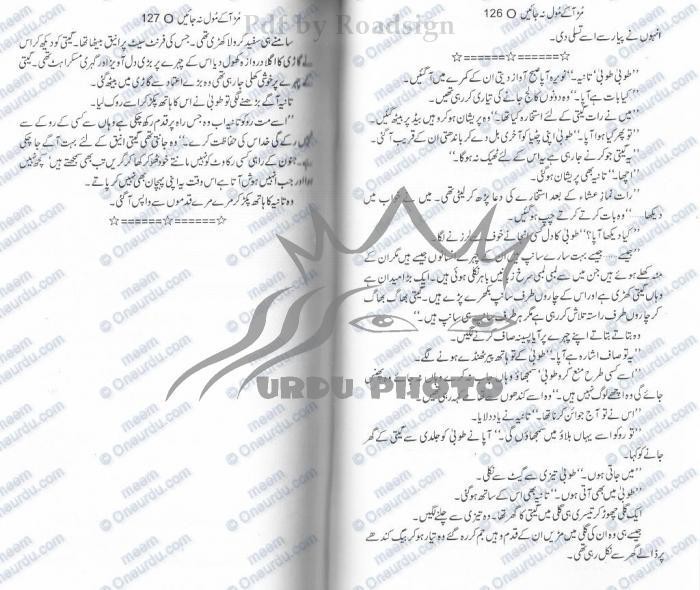 مُڑ آکے مُول نہ جائیں O 126
انہوں نے پیار سے اسے تسلی دی۔
☆======☆======☆
’’طوبیٰ طوبیٰ‘‘ تانیہ۔’’ نویرہ آپا صبح آواز دیتی ان کے کمرے میں آ گئیں۔
’’کیا بات ہے آپا۔‘‘ وہ دونوں کالج جانے کی تیاری کر رہی تھیں۔
’’میں نے رات گیتی کے لئے استخارہ کیا تھا۔‘‘ وہ پریشان ہو کر وہیں بیڈ پر بیٹھ گئیں۔
’’تو پھر کیا ہوا آپا۔‘‘ طوبیٰ اپنی چٹیا کو آخری بل دے کر باندھتی ان کے قریب آ گئی۔
’’یہ گیتی جو کرنے جا رہی ہے یہ اس کے لئے ٹھیک نہ ہو گا۔‘‘
’’اچھا۔‘‘ تانیہ بھی پریشان ہو گئی۔
’’رات نماز عشاء کے بعد استخارے کی دعا پڑھ کر لیٹی تھی۔ میں نے خواب میں
دیکھا.....‘‘ وہ بات کرتے کرتے چپ ہو گئیں۔
’’کیا دیکھا آپا؟‘‘ طوبیٰ کا دل کسی انجانے خوف سے لرزنے لگا۔
’’جیسے..... جیسے بہت سارے سانپ ہیں ان کے چہرے انسانوں جیسے ہیں مگر ان کے
منہ کھلے ہوئے ہیں جن میں سے لمبی لمبی سرخ زبانیں باہر نکلی ہوئی ہیں۔ ایک بڑا میدان ہے
وہاں گیتی کھڑی ہے اور اس کے چاروں طرف سانپ بکھرے پڑے ہیں۔ گیتی بھاگ بھاگ
کر چاروں طرف راستہ تلاش کر رہی ہے مگر ہر طرف سانپ ہی سانپ ہیں۔‘‘
وہ بتاتے بتاتے اپنے چہرے پر آیا پسینہ صاف کرنے لگیں۔
’’یہ تو صاف اشارہ ہے آپا۔‘‘ طوبیٰ کے تو ہاتھ پیر ٹھنڈے ہونے لگے۔
’’اسے کسی طرح منع کرو طوبیٰ‘ سمجھاؤ وہاں نہ جائے وہ پھنس
جائے گی وہ اچھے لوگ نہیں ہیں۔‘‘ وہ اسے کندھوں سے تھامے کہہ رہی تھیں۔
’’اس نے تو آج جوائن کرنا تھا۔‘‘ تانیہ نے یاد دلایا۔
’’تو روکو اسے یہاں بلاؤ میں سمجھاؤں گی۔‘‘ آپا نے طوبیٰ کو جلدی سے گیتی کے گھر
جانے کو کہا۔
’’میں جاتی ہوں۔‘‘ طوبیٰ تیزی سے گیٹ سے نکلی۔
’’طوبیٰ میں بھی آتی ہوں۔‘‘ تانیہ بھی اس کے ساتھ ہو گئی۔
ایک گلی چھوڑ کر تیسری ہی گلی میں گیتی کا گھر تھا۔ وہ تیزی سے چلنے لگیں۔
جیسے ہی وہ ان کی گلی میں مڑیں ان کے قدم وہیں جم کر رہ گئے وہ تیار ہو کر بیگ کندھے
پر ڈالے گھر سے نکل رہی تھی۔
مُڑ آکے مُول نہ جائیں O 127
سامنے ہی سفید کرولا کھڑی تھی۔ جس کی فرنٹ سیٹ پر انیق بیٹھا تھا۔ گیتی کو دیکھ کر اس
نے گاڑی کا اگلا دروازہ کھول دیا اس کے چہرے پر بڑی دل آویز اور گہری مسکراہٹ تھی۔ گیتی
کے چہرے پر خوشی کھلی جا رہی تھی وہ بڑے اعتماد سے گاڑی میں بیٹھ گئی۔
تانیہ آگے بڑھنے لگی تو طوبیٰ نے اس کا ہاتھ پکڑ کر اسے روک لیا۔
’’اسے مت روکو تانیہ اب وہ جس راہ پر قدم رکھ چکی ہے وہاں سے کسی کے روکے سے
نہیں رکے گی خدا اس کی حفاظت کرے۔‘‘ وہ جانتی تھی گیتی انیق کے لئے بہت آگے جا چکی
ہے۔ جنون کے راہی کسی رکاوٹ کو نہیں مانتے خود ٹھوکر کھا کر گریں تب بھی سمجھتے ہیں‘ کچھ نہیں
ہوا اور جب انہیں ہوش آتا ہے اس وقت یہ اپنی پہچان بھی نہیں کر پاتے۔
وہ تانیہ کا ہاتھ پکڑ کر مرے مرے قدموں سے واپس آ گئی۔
☆======☆======☆
Pdf by Roadsign
URDU PHOTO
maam
@ Oneurdu.com